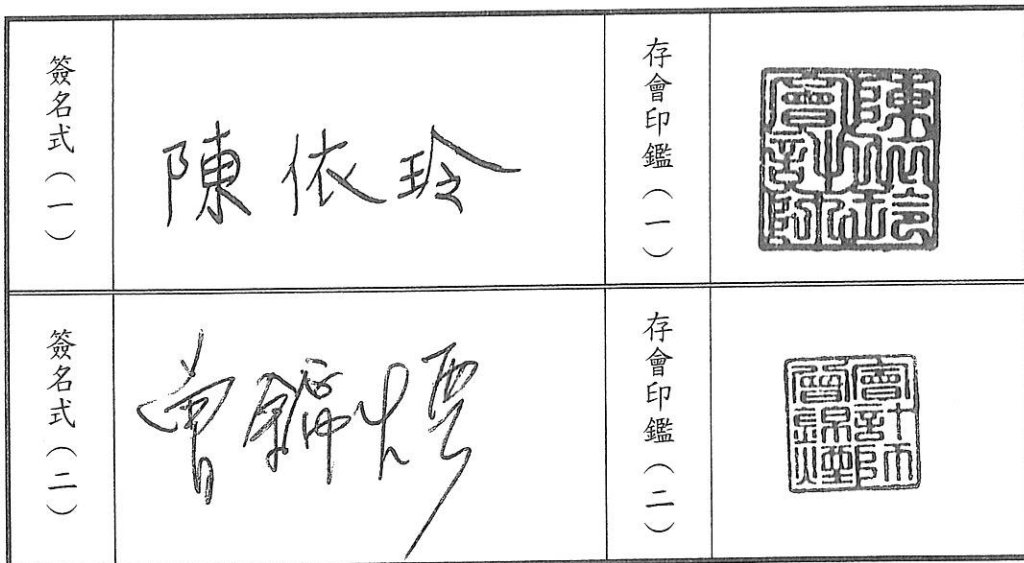 簽名式（一）
陳依玲
存會印鑑（一）
陳依玲會計師
簽名式（二）
曾錦煙
存會印鑑（二）
會計師曾錦煙